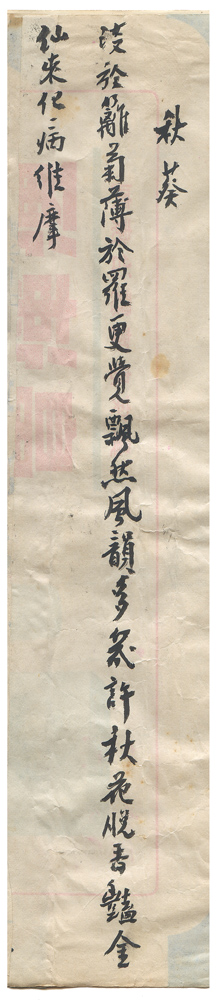 秋葵
淡於籬菊薄於羅更覺飄然風韻多幾許秋花脫香豔金
仙來化病維摩